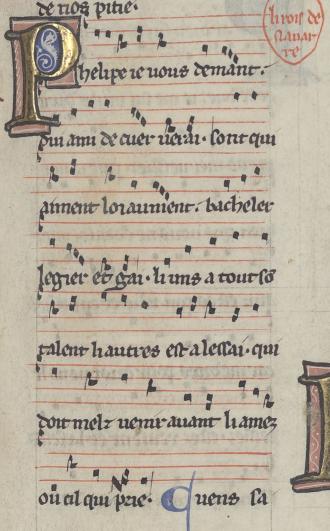 de nos pitie.
li rois de
navar
re
Phelipe ie vous demant.
dui ami de cuer verai. sont qui
aiment loiaument. bacheler
legier et gai. li uns a tout son
talent li autres est a lessai. qui
doit melz venir avant li amez
ou cil qui prie. Quens sa